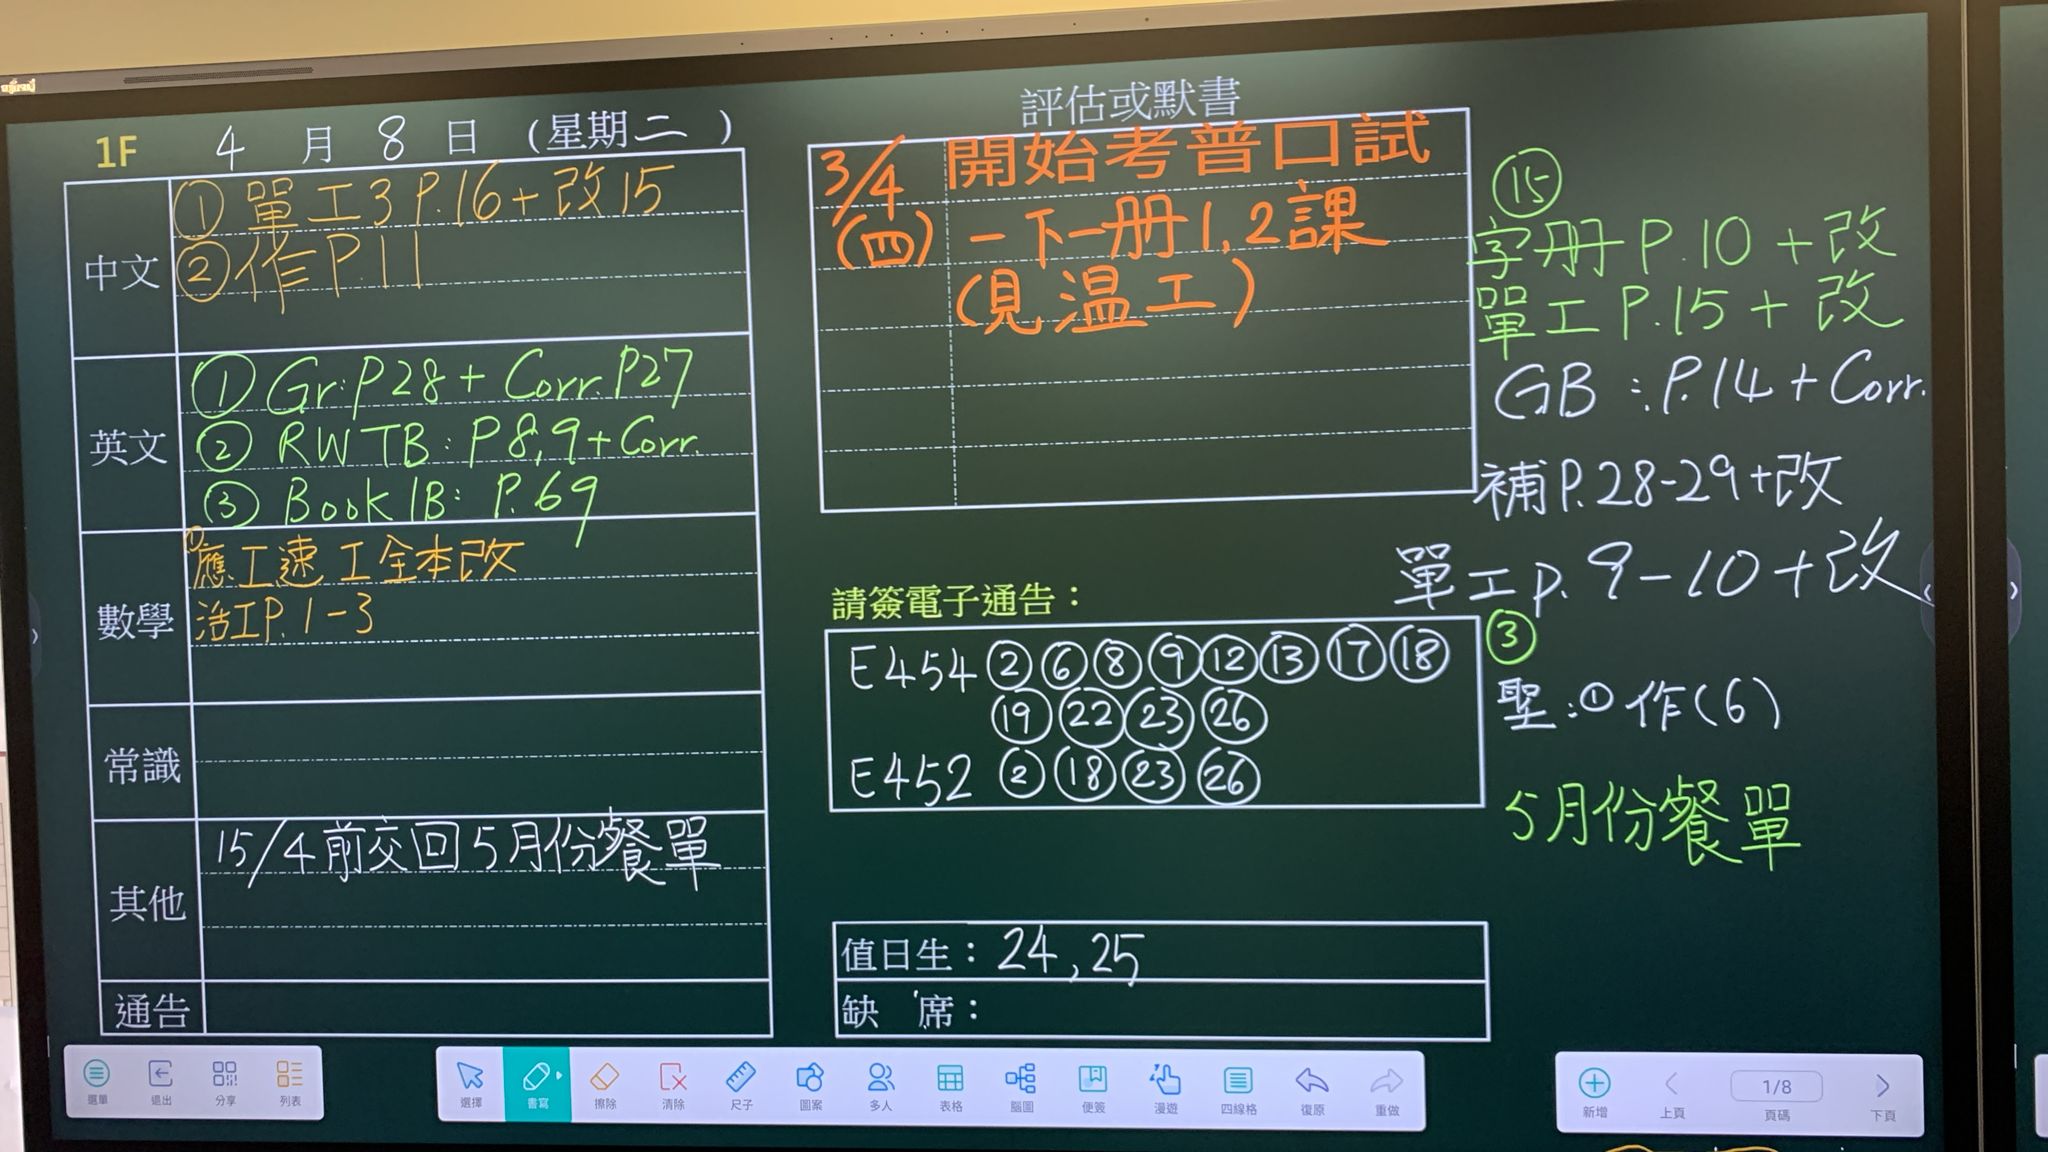 1F 4月8日(星期二)
中文
① 單工3 P.16+改15
② 作P.11
英文
① Gr: P28 + Corr. P27
② RWTB: P8,9+Corr.
③ Book 1B: P.69
數學
① 應工速工全本改
活工P.1-3
常識
其他
15/4前交回5月份餐單
通告
評估或默書
3/4 開始考普口試
(四) 一下一册1,2課
(見温工)
請簽電子通告：
E454 ② ⑥ ⑧ ⑨ ⑫ ⑬ ⑰ ⑱
⑲ ㉒ ㉓ ㉖
E452 ② ⑱ ㉓ ㉖
值日生：24,25
缺 席：
⑮
字册P.10+改
單工P.15+改
GB:P.14+Corr.
補P.28-29+改
單工p.9-10+改
③
聖:①作(6)
5月份餐單
選單 退出 分享 列表
選擇 書寫 擦除 清除 尺子 圖案 多人 表格 腦圖 便簽 漫遊 四線格 復原 重做
新增 上頁 1/8 頁碼 下頁